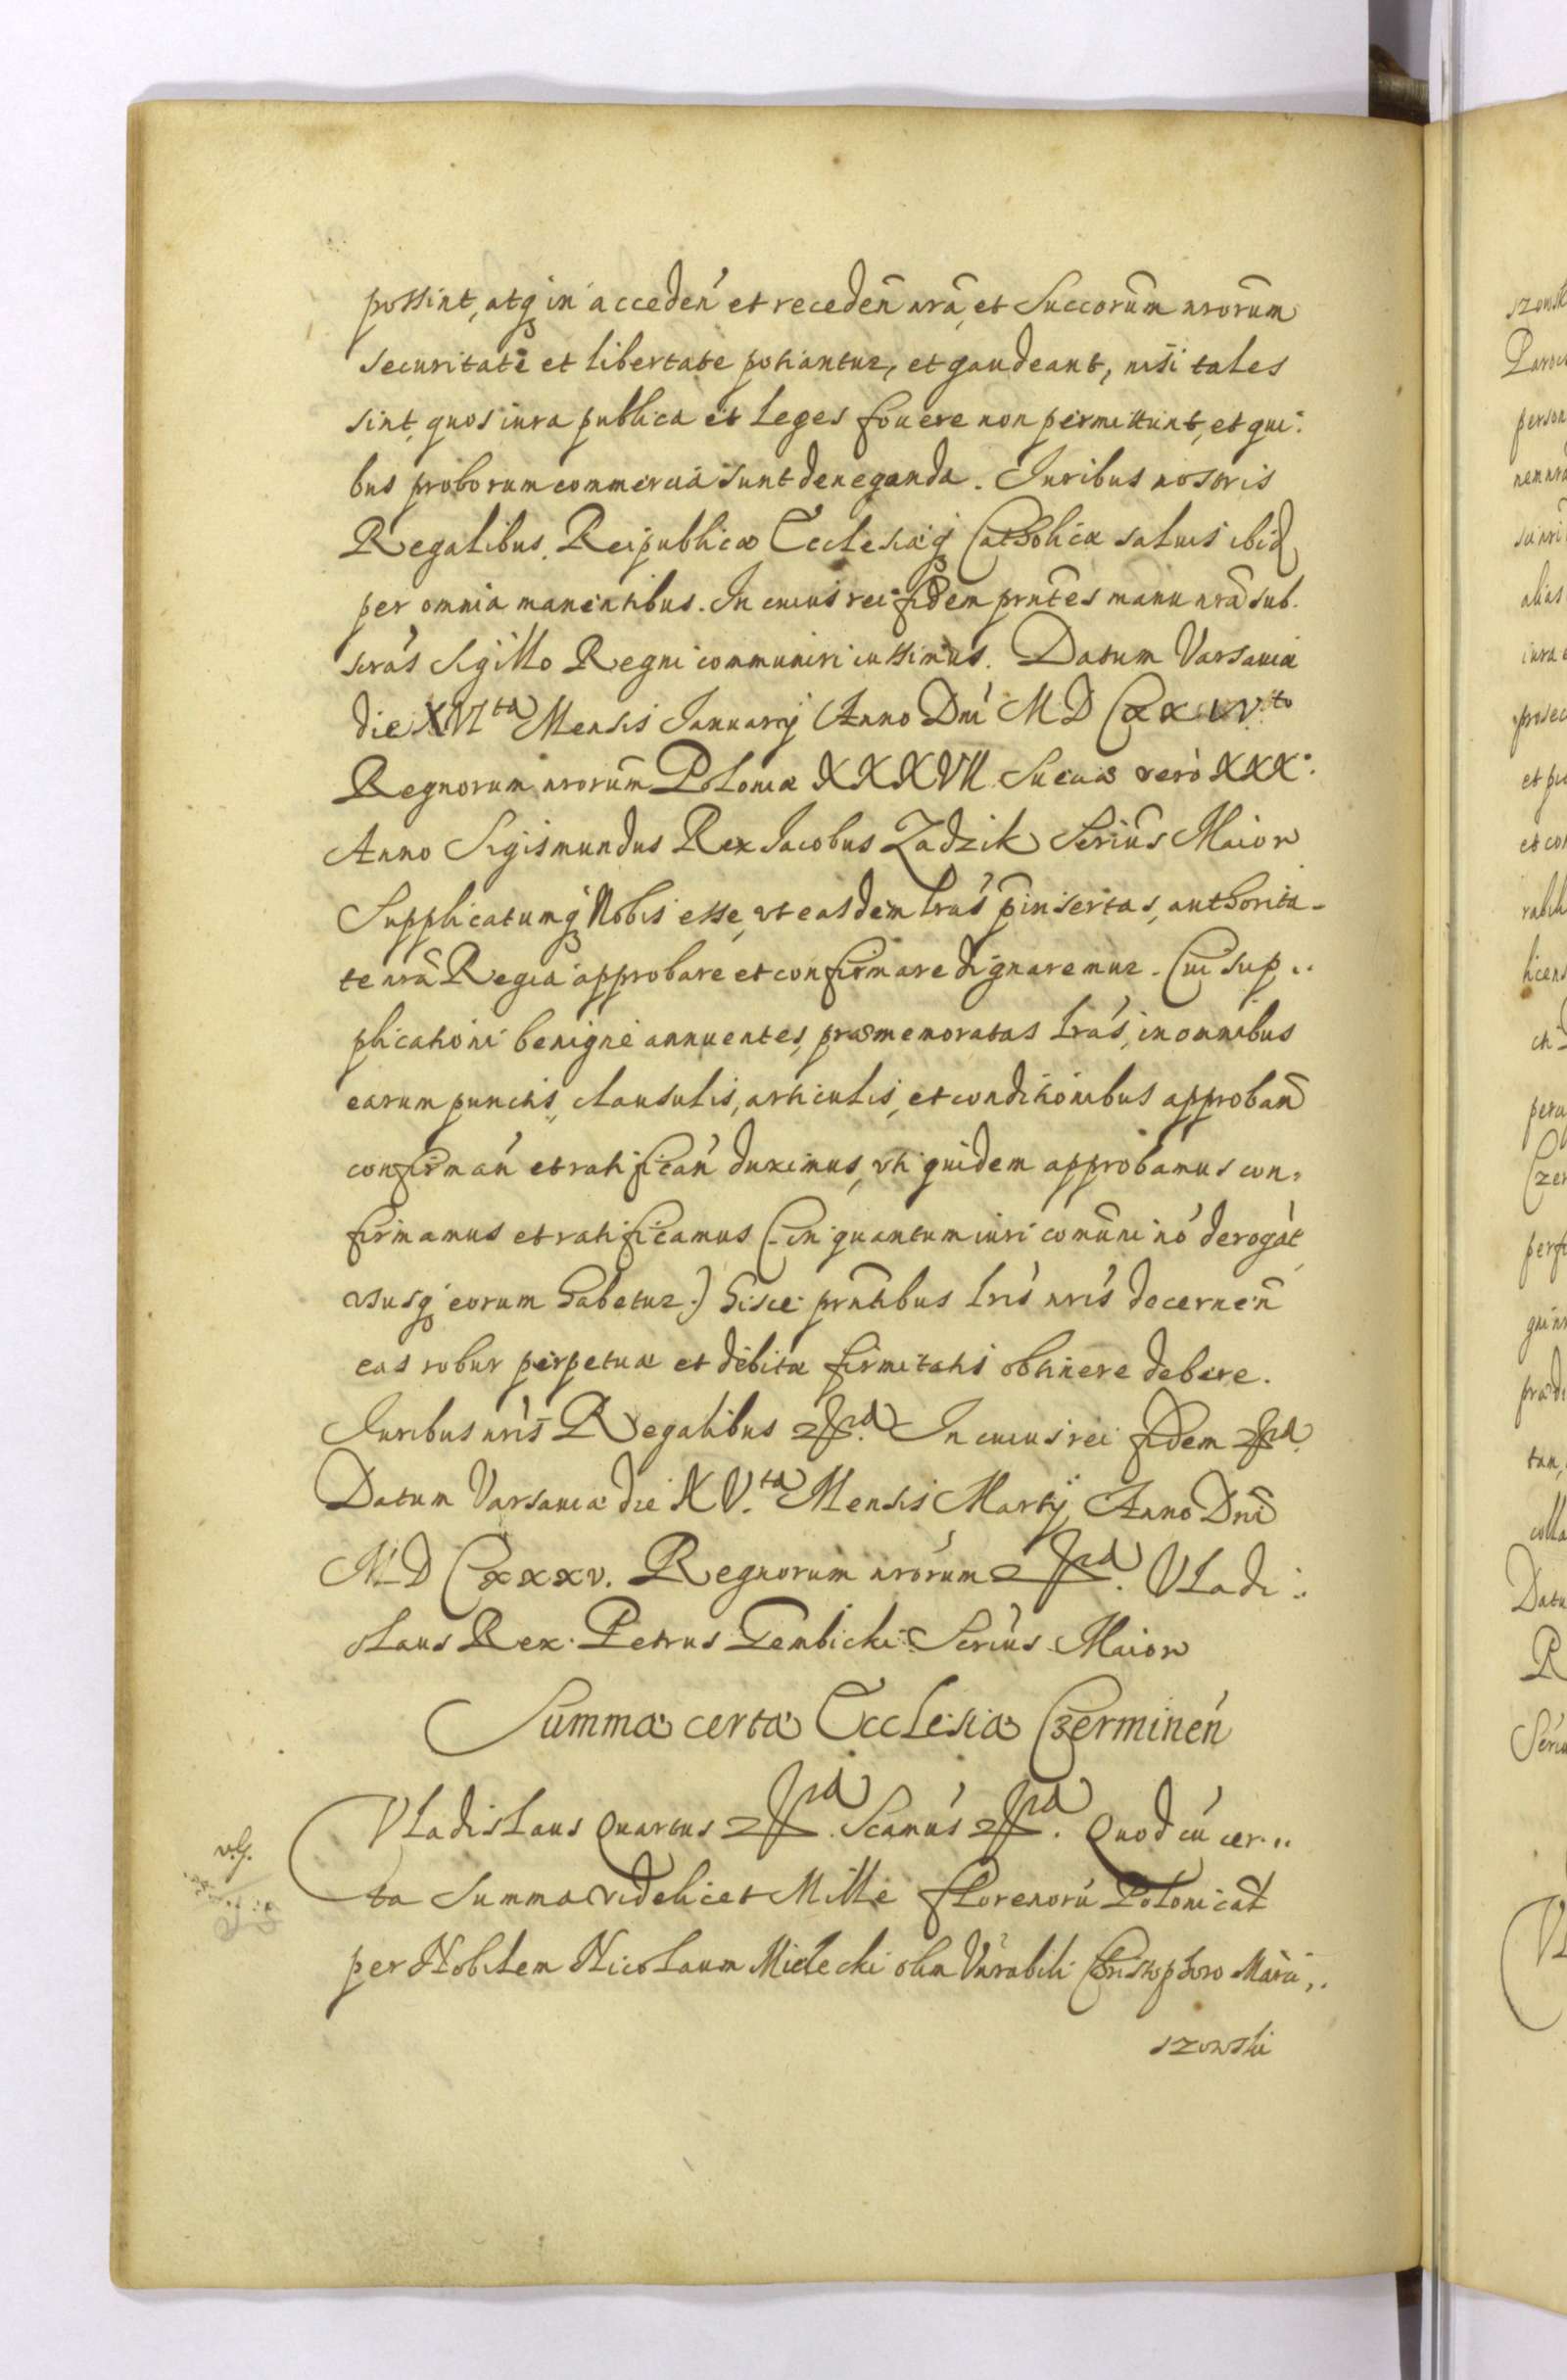 possint, atq in acceden et receden nrã, et Succorum nrorum
securitate et libertate potiantur, et gaudeant, nisi tales
sint, quos iura publica et Leges fouere non permittunt, et qui:
bus proborum commercia sunt deneganda. Iuribus nostris
Regalibus, Reipublicæ Ecclesiæq Catholicæ saluis ibid
per omnia manentibus. In cuius rei fidem prntes manu nrã sub.
scras Sigillo Regni communiri iussimus. Datum Varsauiæ
die XVI ta Mensis Januarij Anno Dni M D C XX IV to
Regnorum nrorum Poloniæ XXXVII Sueciæ vero XXX:
Anno Sigismundus Rex Jacobus Zadzik Serius Maior
Supplicatumq Nobis esse, vt easdem lras pinsertas, authorita-
te nrã Regia approbare et confirmare dignaremur. Cui sup..
plicationi benigne annuentes, præmemoratas lras, in omnibus
earum punctis, clausulis, articulis, et conditionibus approban
confirman et ratifican duximus, vti quidem approbamus con=
firmamus et ratificamus (in quantum iuri comuni nó derogat
vsusq eorum habetur) hisce prntibus lris nris decernen
eas robur perpetuæ et debitæ firmitatis obtinere debere.
Iuribus nris Regalibus In cuius rei fidem
Datum Varsauiæ die XV. ta Mensis Martij Anno Dni
M D C xxxv. Regnorum nrorum Vladi:
slaus Rex. Petrus Gembicki Serius Maior
Summa certa Ecclesiæ Czerminen
Vladislaus Quartus Scamus Quod cú cer..
ta Summa videlicet Mille florenorú Polonicat
per Nobilem Nicolaum Mielecki olim Vnrabili Christophoro Marci,.
szowski